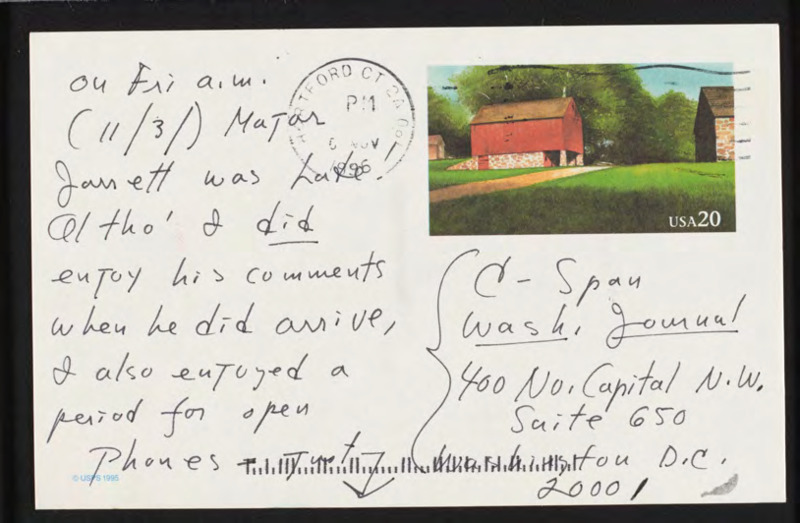 on Fri a.m.
(11/3/) Major
Jarrett was Late!
Altho' I did
enjoy his comments
when he did arrive,
I also enjoyed a
period for open
Phones - Just
© USPS 1995
HARTFORD CT
PM
NOV
USA20
C-Span
Wash. Journal
400 No. Capital N.W.
Suite 650
Washington D.C.
20001